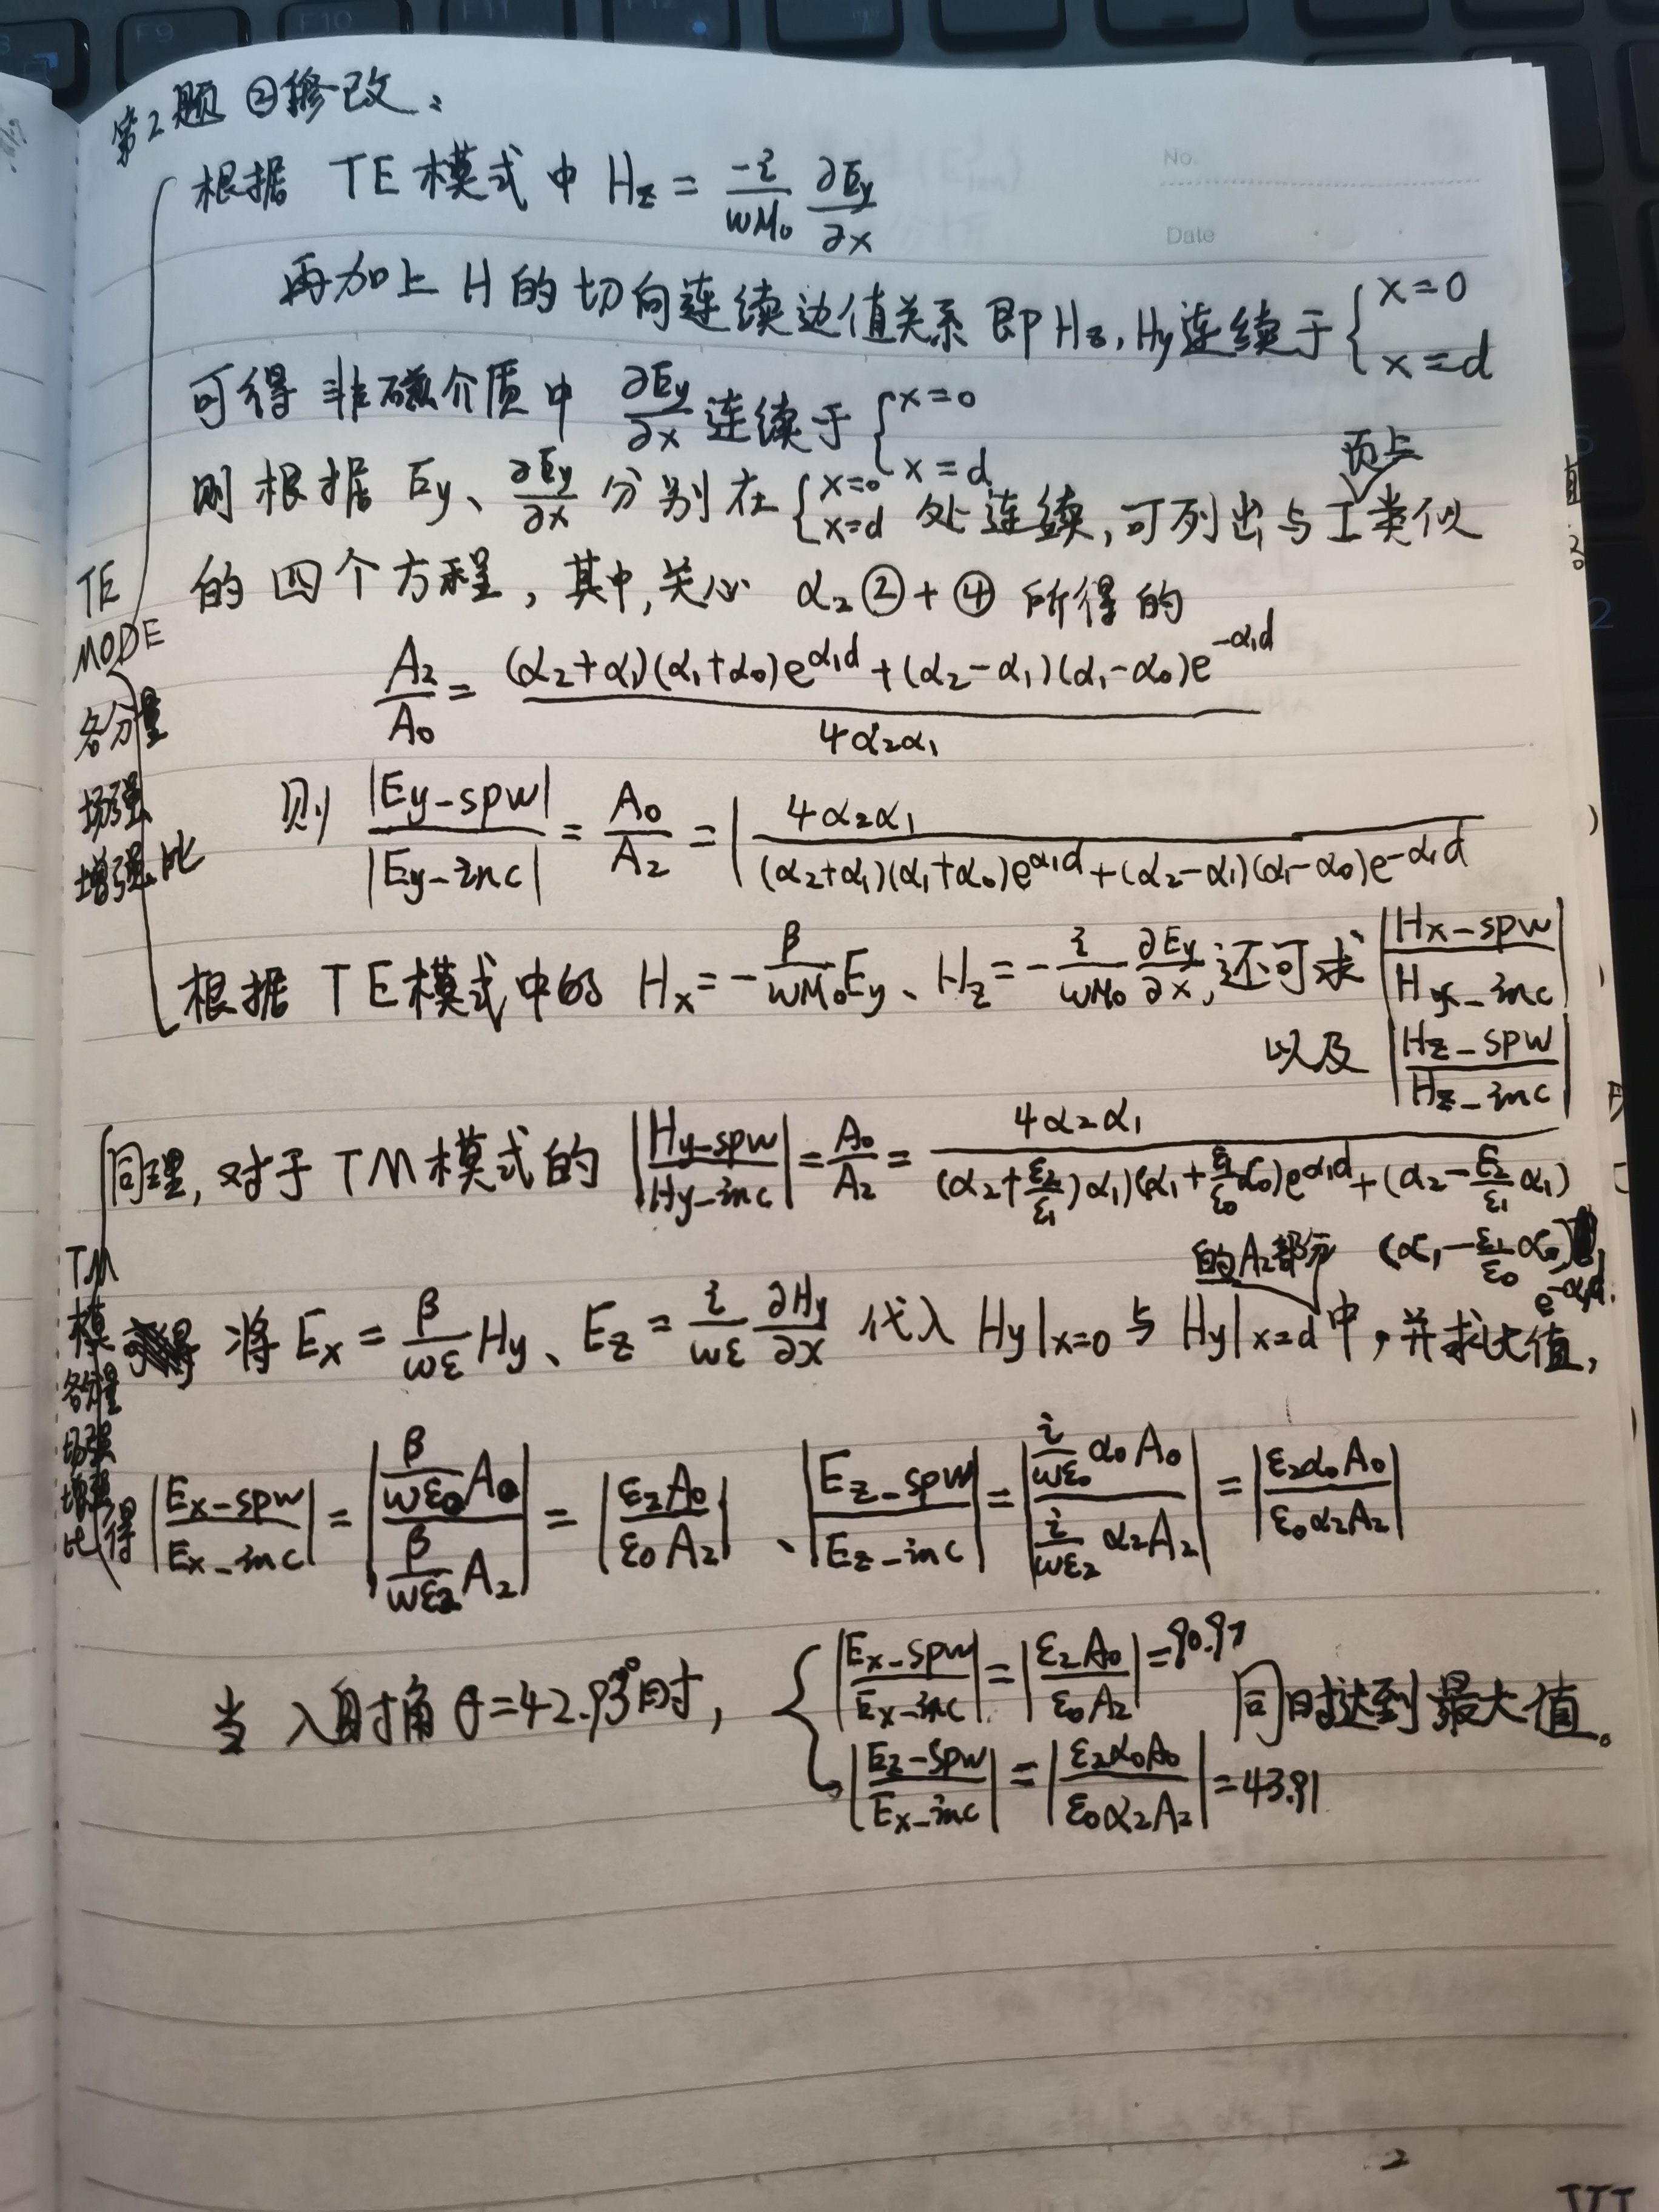 第2题 ②修改：
No.
根据 TE 模式中 Hz = -i/(ωμ₀) ∂Ey/∂x
Date
再加上 H 的切向连续边值关系 即 Hz, Hy 连续于 { x=0 x=d
可得 非磁介质中 ∂Ey/∂x 连续于 { x=0 x=d
页上
则根据 Ey、∂Ey/∂x 分别在 { x=0 x=d 处连续, 可列出与 I 类似
的四个方程, 其中, 关心 α₂②+④ 所得的
TE MODE 各分量 场强 增强比
A₂/A₀ = ((α₂+α₁)(α₁+α₀)e^{α₁d} + (α₂-α₁)(α₁-α₀)e^{-α₁d}) / 4α₂α₁
则 |Ey-spw|/|Ey-inc| = A₀/A₂ = | 4α₂α₁ / ((α₂+α₁)(α₁+α₀)e^{α₁d} + (α₂-α₁)(α₁-α₀)e^{-α₁d})
根据 TE 模式中的 Hx = -β/(ωμ₀) Ey、Hz = -i/(ωμ₀) ∂Ey/∂x, 还可求 |Hx-spw / Hx-inc|
以及 |Hz-spw / Hz-inc|
同理, 对于 TM 模式的 |Hy-spw / Hy-inc| = A₀/A₂ = 4α₂α₁ / (α₂+ε₂/ε₁)α₁)(α₁+ε₁/ε₀ α₀)e^{α₁d} + (α₂-ε₂/ε₁ α₁)
(α₁-ε₁/ε₀ α₀) e^{-α₁d}
的A₂部分
TM 模 各分量 场强 增强 比
将 Ex = β/(ωε) Hy、Ez = i/(ωε) ∂Hy/∂x 代入 Hy|x=0 与 Hy|x=d 中, 并求比值,
得 |Ex-spw / Ex-inc| = |(β/(ωε₀) A₀) / (β/(ωε₂) A₂)| = |ε₂A₀ / ε₀A₂|、|Ez-spw / Ez-inc| = |(i/(ωε₀) α₀A₀) / (i/(ωε₂) α₂A₂)| = |ε₂α₀A₀ / ε₀α₂A₂|
当 入射角 θ=42.93°时, { |Ex-spw / Ex-inc| = |ε₂A₀ / ε₀A₂| = 90.97 同时达到最大值。
|Ez-spw / Ex-inc| = |ε₂α₀A₀ / ε₀α₂A₂| = 43.91
2